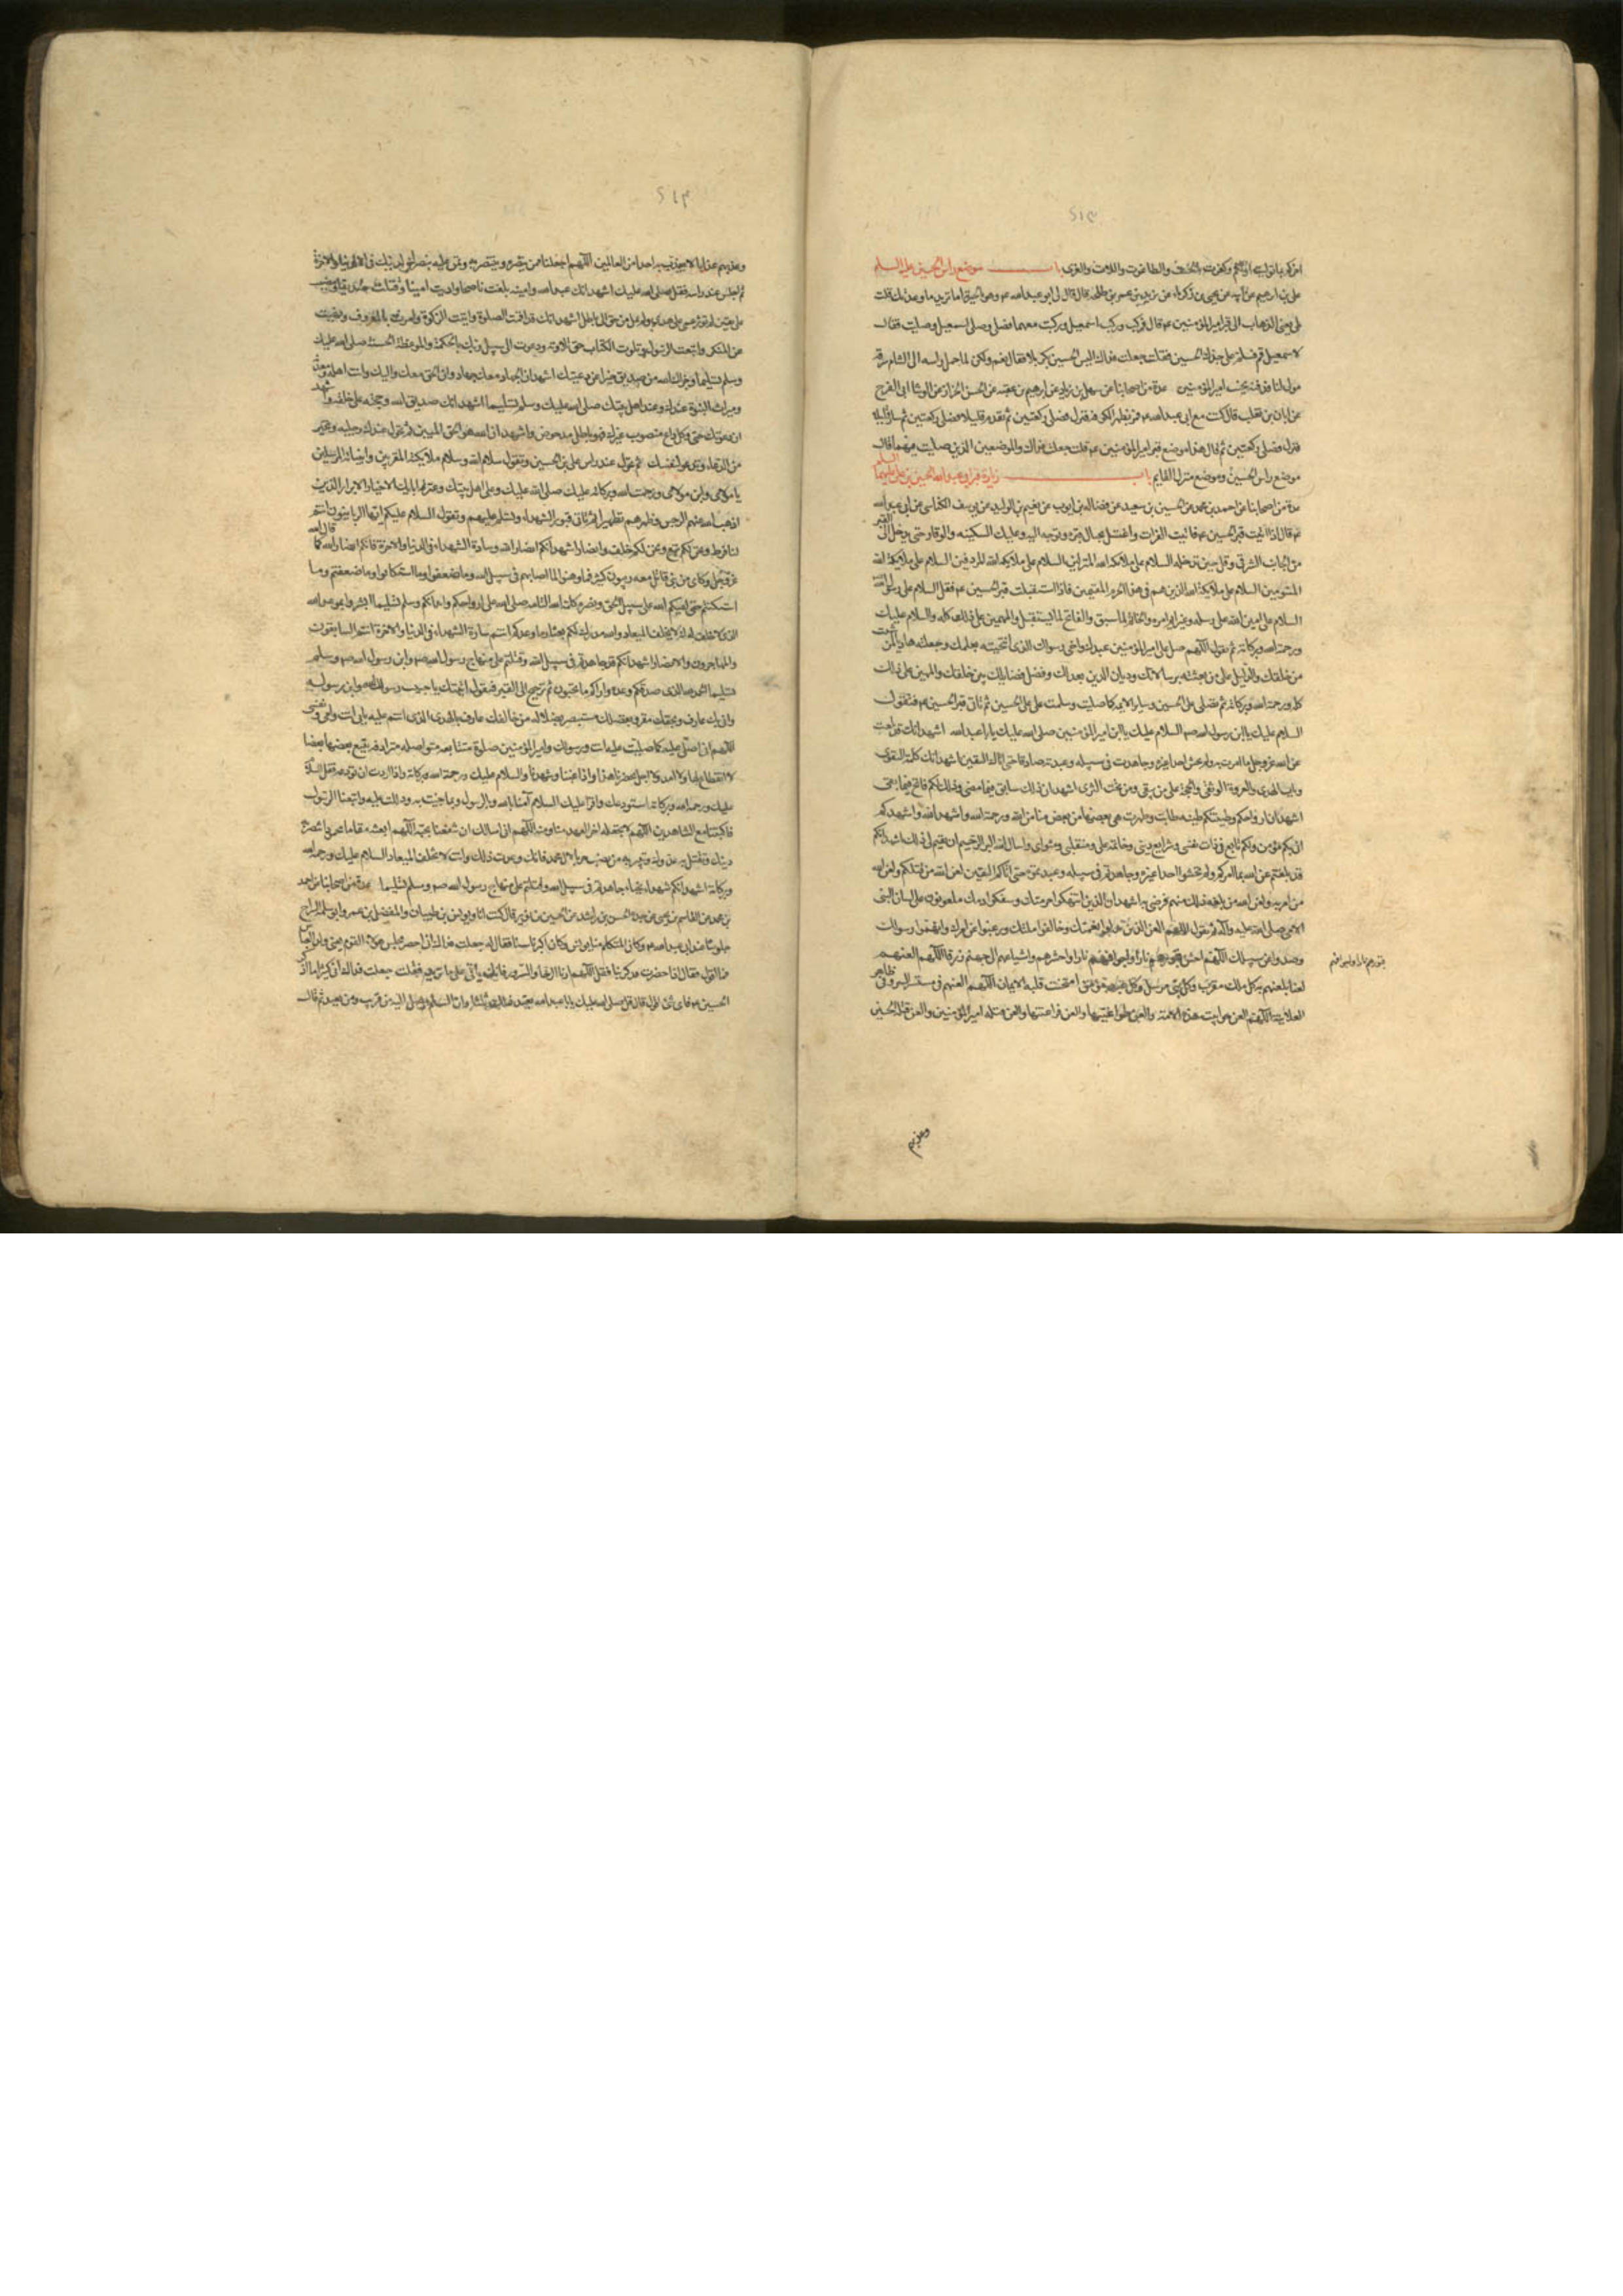 ٤١٣
اخركم بما توليت اولكم وكفرت بالجبت والطاغوت واللات والعزى باب موضع راس الحسين عليه السلام
على بن ابرهيم عن ابيه عن يحيى بن زكريا عن يزيد بن عمر بن طلحة قال قال لى ابو عبدالله ع وهو بالحيرة اما تريد ما وعدتك قلت
بلى يعنى الذهاب الى قبر امير المؤمنين ع قال فركب وركب اسمعيل وركبت معهما فصلى وصلى اسمعيل وصليت فقال
لاسمعيل قم فسلم على جدك الحسين فقلت جعلت فداك اليس الحسين بكربلا فقال نعم ولكن لما حمل راسه الى الشام سرقه
مولى لنا فدفنه بجنب امير المؤمنين عدة من اصحابنا عن سهل بن زياد عن ابرهيم بن عقبه عن الحسن الخزاز عن الوشا ابى الفرج
عن ابان بن تغلب قال كنت مع ابى عبدالله ع فمر بظهر الكوفه فنزل فصلى ركعتين ثم تقدم قليلا فصلى ركعتين ثم سار قليلا
فنزل فصلى ركعتين ثم قال هذا موضع قبر امير المؤمنين ع قلت جعلت فداك والموضعين الذين صليت فيهما قال
موضع راس الحسين وموضع منزل القايم باب زيارة قبر ابى عبدالله الحسين بن على عليهما السلم
عدة من اصحابنا عن احمد بن محمد عن الحسين بن سعيد عن فضاله بن ايوب عن نعيم بن الوليد عن يوسف الكناسى عن ابى عبدالله
ع قال اذا اتيت قبر الحسين ع فائت الفرات واغتسل بحيال قبره وتوجه اليه وعليك السكينه والوقار حتى تدخل الى القبر
من الجانب الشرقى وقل حين تدخله السلام على ملائكة الله المنزلين السلام على ملائكة الله المردفين السلام على ملائكة الله
المسومين السلام على ملائكة الله الذين هم فى هذا الحرم المقيمين فاذا استقبلت قبر الحسين ع فقل السلام على رسول الله
السلام على امين الله على رسله وعزايم امره والخاتم لما سبق والفاتح لما استقبل والمهيمن على ذلك كله والسلام عليك
ورحمة الله وبركاته ثم تقول اللهم صل على امير المؤمنين عبدك واخى رسولك الذى انتجبته بعلمك وجعلته هاديا لمن شئت
من خلقك والدليل على من بعثته برسالاتك وديان الدين بعدلك وفصل قضايك بين خلقك والمهيمن على ذلك
كله ورحمة الله وبركاته ثم تصلى على الحسين وساير الايمه كما صليت وسلمت على على الحسين ثم تاتى قبر الحسين ع فتقول
السلام عليك يا ابن رسول الله ص السلام عليك يا ابن امير المؤمنين صلى الله عليك يا ابا عبدالله اشهد انك قد بلغت
عن الله عز وجل ما امرت به ولم تخش احدا غيره وجاهدت فى سبيله وعبدته صادقا حتى اتاك اليقين اشهد انك كلمة التقوى
وباب الهدى والعروة الوثقى والحجة على من يبقى ومن تحت الثرى اشهد ان ذلك سابق فيما مضى وذلك لكم فاتح فيما بقى
اشهد ان ارواحكم وطينتكم طينه طابت وطهرت هى بعضها من بعض منا من الله ورحمة الله واشهد الله واشهدكم
انى بكم مؤمن ولكم تابع فى ذات نفسى وشرايع دينى وخاتمة عملى ومنقلبى ومثواى واسال الله البر الرحيم ان يتم لى ذلك اشهد انكم
قد بلغتم عن الله ما امركم ولم تخشوا احدا غيره وجاهدتم فى سبيله وعبدتموه حتى اتاكم اليقين لعن الله من قتلكم ولعن الله
من امر به ولعن الله من بلغه ذلك منهم فرضى به اشهد ان الذين انتهكوا حرمتك وسفكوا دمك ملعونون على لسان النبى
الامى صلى الله عليه واله ثم تقول اللهم العن الذين بدلوا نعمتك وخالفوا ملتك ورغبوا عن امرك واتهموا رسولك
وصدوا عن سبيلك اللهم احش قبورهم نارا واجوافهم نارا واحشرهم واشياعهم الى جهنم زرقا اللهم العنهم
قبورهم نارا واجوافهم
لعنا يلعنهم به كل ملك مقرب وكل نبى مرسل وكل عبد مؤمن امتحنت قلبه للايمان اللهم العنهم فى مستسر السر وفى ظاهر
العلانيه اللهم العن جوابيت هذه الامة والعن طواغيتها والعن فراعنتها والعن قتلة امير المؤمنين والعن قتلة الحسين
وعذبهم
٤١٤
وعذبهم عذابا لا تعذب به احدا من العالمين اللهم اجعلنا ممن ينصره وينتصر به وتمن عليه بنصرك لدينك فى الدنيا والاخرة
ثم اجلس عند راسه فقل صلى الله عليك اشهد انك عبدالله وامينه بلغت ناصحا واديت امينا وقتلت صديقا ومضيت
على يقين لم تؤثر عمى على هدى ولم تمل من حق الى باطل اشهد انك قد اقمت الصلوة واتيت الزكوة وامرت بالمعروف ونهيت
عن المنكر واتبعت الرسول وتلوت الكتاب حق تلاوته ودعوت الى سبيل ربك بالحكمة والموعظة الحسنة صلى الله عليك
وسلم تسليما وجزاك الله من صديق خيرا عن رعيتك اشهد ان الجهاد معك جهاد وان الحق معك واليك وانت اهله ومعدنه
وميراث النبوة عندك وعند اهل بيتك صلى الله عليك وسلم تسليما اشهد انك صديق الله وحجته على خلقه واشهد
ان دعوتك حق وكل داع منصوب غيرك فهو باطل مدحوض واشهد ان الله هو الحق المبين ثم تحول عند رجليه وتخير
من الدعاء وتدعو لنفسك ثم تحول عند راس على بن الحسين وتقول سلام الله وسلام ملائكته المقربين وانبيائه المرسلين
يا مولاى وابن مولاى ورحمت الله وبركاته عليك صلى الله عليك وعلى اهل بيتك وعترة ابائك الاخيار الابرار الذين
اذهب الله عنهم الرجس وطهرهم تطهيرا ثم تاتى قبور الشهداء وتسلم عليهم وتقول السلام عليكم ايها الربانيون انتم
لنا فرط ونحن لكم تبع ونحن لكم خلف وانصار اشهد انكم انصار الله وسادة الشهداء فى الدنيا والاخرة فانكم انصار الله كما قال الله
عز وجل وكاى من نبى قاتل معه ربيون كثير فما وهنوا لما اصابهم فى سبيل الله وما ضعفوا وما استكانوا وما ضعفتم وما
استكنتم حتى لقيتم الله على سبيل الحق ونصرة كلمة الله التامه صلى الله على ارواحكم وابدانكم وسلم تسليما ابشروا بموعد الله
الذى لا خلف له انه لا يخلف الميعاد والله مدرك لكم بثار ما وعدكم انتم سادة الشهداء فى الدنيا والاخرة انتم السابقون
والمهاجرون والانصار اشهد انكم قد جاهدتم فى سبيل الله وقتلتم على منهاج رسول الله ص وابن رسول الله ص وسلم
تسليما الحمد لله الذى صدقكم وعده واراكم ما تحبون ثم ترجع الى القبر فتقول اتيتك يا حبيب رسول الله وابن رسوله
وانى بك عارف وبحقك مقر وبفضلك مستبصر بضلالة من خالفك عارف بالهدى الذى انتم عليه بابى انت وامى ونفسى
اللهم انى اصلى عليه كما صليت عليه انت ورسولك وامير المؤمنين صلوة متتابعه متواصله مترادفه يتبع بعضها بعضا
لا انقطاع لها ولا امد ولا اجل فى محضرنا هذا واذا غبنا وشهدنا والسلام عليك ورحمة الله وبركاته واذا اردت ان تودعه فقل السلام
عليك ورحمة الله وبركاته استودعك الله واقرا عليك السلام امنا بالله وبالرسول وبما جئت به ودللت عليه واتبعنا الرسول
فاكتبنا مع الشاهدين اللهم لا تجعله اخر العهد منا ومنه اللهم انى اسالك ان تنفعنا بحبه اللهم ابعثه مقاما محمودا تنصر به
دينك وتقتل به عدوك وتبير به من نصب حربا لال محمد فانك وعدت ذلك وانت لا تخلف الميعاد السلام عليك ورحمة الله
وبركاته اشهد انكم شهداء نجباء جاهدتم فى سبيل الله وقتلتم على منهاج رسول الله ص وسلم تسليما عدة من اصحابنا عن احمد
بن محمد عن القاسم بن يحيى عن جده الحسن بن راشد عن الحسين بن ثوير قال كنت انا ويونس بن ظبيان والمفضل بن عمر وابو سلمة السراج
جلوسا عند ابى عبدالله ع وكان المتكلم منا يونس وكان اكبرنا سنا فقال له جعلت فداك انى احضر مجلس هؤلاء القوم يعنى ولد العباس
فما اقول فقال اذا حضرت فذكرتنا فقل اللهم ارنا الرخا والسرور فانك تاتى على ما تريد فقلت جعلت فداك انى كثيرا ما اذكر
الحسين ع فاى شئ اقول قال قل صلى الله عليك يا با عبدالله تعيد ذلك ثلثا فان السلام يصل اليه من قريب ومن بعيد ثم قال